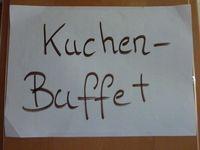 Kuchen-
Buffet